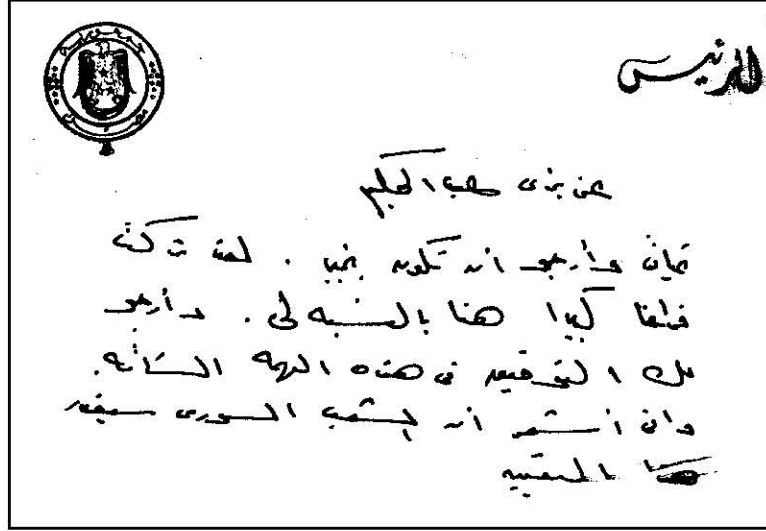 الرئيس
عزيزى عبد الحكيم
تحياتى وأرجو ان تكون بخير. لقد تركت
فراغا كبيرا هنا بالنسبه لى. وأرجو
لك التوفيق فى هذه المهمة الشاقه.
وانى أشعر ان الشعب السورى سيقدر
هذا